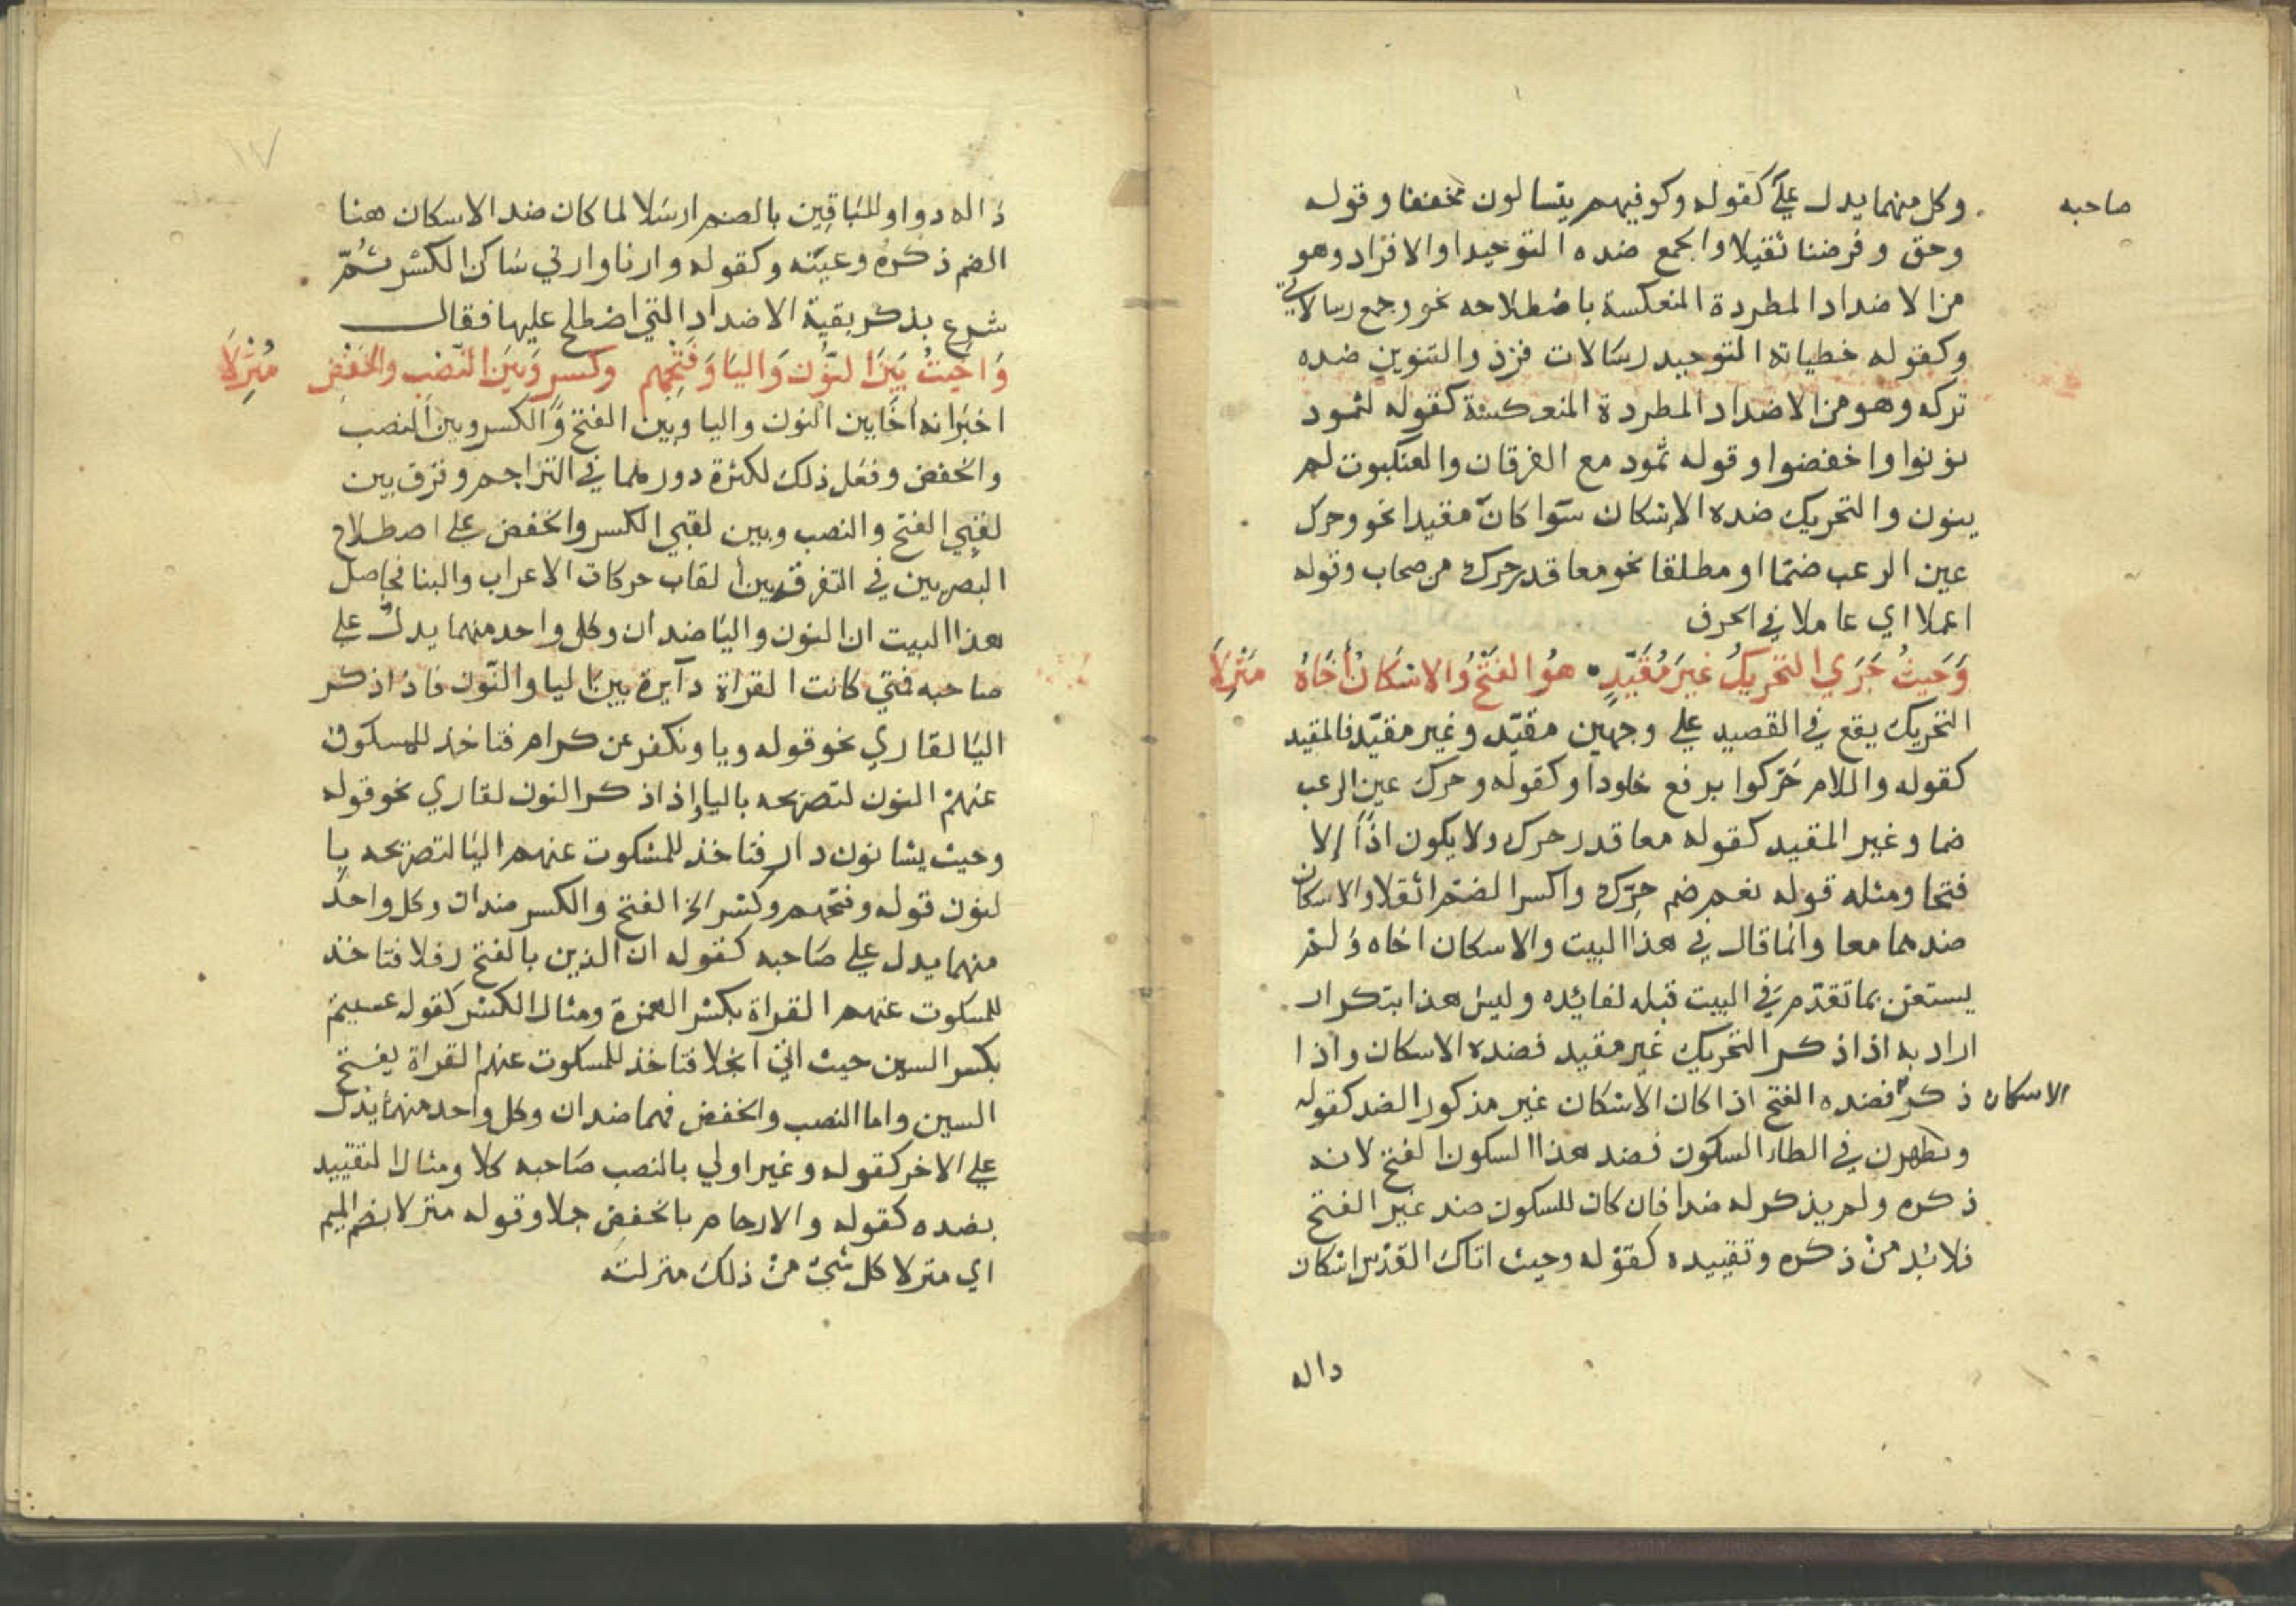 وكل منهما يدل علي كقوله وكوفيهم يتسالون مخففا وقوله
صاحبه
وحق وفرضنا ثقيلا والجمع ضده التوحيد او الافراد وهو
من الاضداد المطردة المنعكسة باصطلاحه نحو وجمع رسالاتي
وكقوله خطياته التوحيد رسالات فرد والتنوين ضده
تركه وهو من الاضداد المطردة المنعكسة كقوله لثمود
نونوا واخفضوا وقوله ثمود مع الفرقان والعنكبوت لم
ينون والتحريك ضده الاسكان سوا كان مقيدا نحو وحرك
عين الرعب ضما او مطلقا نحو معا قدر حرك من صحاب وقوله
اعملا اي عاملا في الحرف
وَحَيثُ جَرَي التحريكُ غيرَ مُقَيَّدٍ هُوَ الفَتْحُ والاسْكَانُ أخَاهُ مَنْزِلاَ
التحريك يقع في القصيد علي وجهين مقيّد وغير مقيّد فالمقيد
كقوله واللام حَرّكوا برفع خلودا وكقوله وحرك عين الرعب
ضما وغير المقيد كقوله معا قدر حرك ولا يكون اذًا إلا
فتحا ومثله قوله نعم ضم حرّك واكسر الضم اثقلا والاسكان
ضدهما معا وانما قال في هذا البيت والاسكان اخاه ولم
يستغن بما تقدّم في البيت قبله لفائده وليس هذا بتكرار
اراد به اذا ذكر التحريك غير مقيد فضده الاسكان واذا
ذكر فضده الفتح اذا كان الاسكان غير مذكور الضد كقوله
الاسكان
ويطهرن في الطاء السكون فضد هذا السكون الفتح لانه
ذكره ولم يذكر له ضدا فان كان للسكون ضد غير الفتح
فلا بُد من ذكره وتقييده كقوله وحيث اتاك القدس اسكان
داله
١٧
ذاله دوا وللباقين بالضم ارسلا لما كان ضد الاسكان هنا
الضم ذكره وعيّنه وكقوله وارنا وارني ساكن الكسر ثُمّ
شرع بذكر بقية الاضداد التي اصطلح عليها فقال
وَاخَيتُ بَينَ النُّونِ وَاليَا وَفَتْحِهِم وكسرٍ وَبَينَ النَّصْبِ والخَفْضِ مُنْزِلاَ
اخبر انه اخا بين النون واليا وبين الفتح والكسر وبين النصب
والخفض وفعل ذلك لكثرة دورهما في التراجم وفرق بين
لقبي الفتح والنصب وبين لقبي الكسر والخفض علي اصطلاح
البصريين في التفرق بين ألقاب حركات الاعراب والبنا فحاصل
هذا البيت ان النون واليا ضدان وكل واحد منهما يدل علي
صاحبه فمتي كانت القراة دآيرة بين اليا والنّون فاذا ذكر
اليا لقاري نحو قوله ويا ونكفر عن كرام فتاخذ للمسكوت
عنهم النون لتصريحه باليا واذا ذكر النون لقاري نحو قوله
وحيث يشا نون دار فتاخذ للمسكوت عنهم اليا لتصريحه با
لنون قوله وفتحهم وكسر الخ الفتح والكسر ضدان وكل واحد
منهما يدل علي صاحبه كقوله ان الذين بالفتح رفلا فتاخذ
للمسكوت عنهم القراة بكسر الهمزة ومثال الكسر كقوله عسيتم
بكسر السين حيث اتي انجلا فتاخذ للمسكوت عنهم القراة بفتح
السين واما النصب والخفض فهما ضدان وكل واحد منهما يدل
علي الاخر كقوله وغير اولي بالنصب صاحبه كلا ومثال التقييد
بضده كقوله والارحام بالخفض جملا وقوله منزلا بضم الميم
اي منزلا كل شي من ذلك منزلته